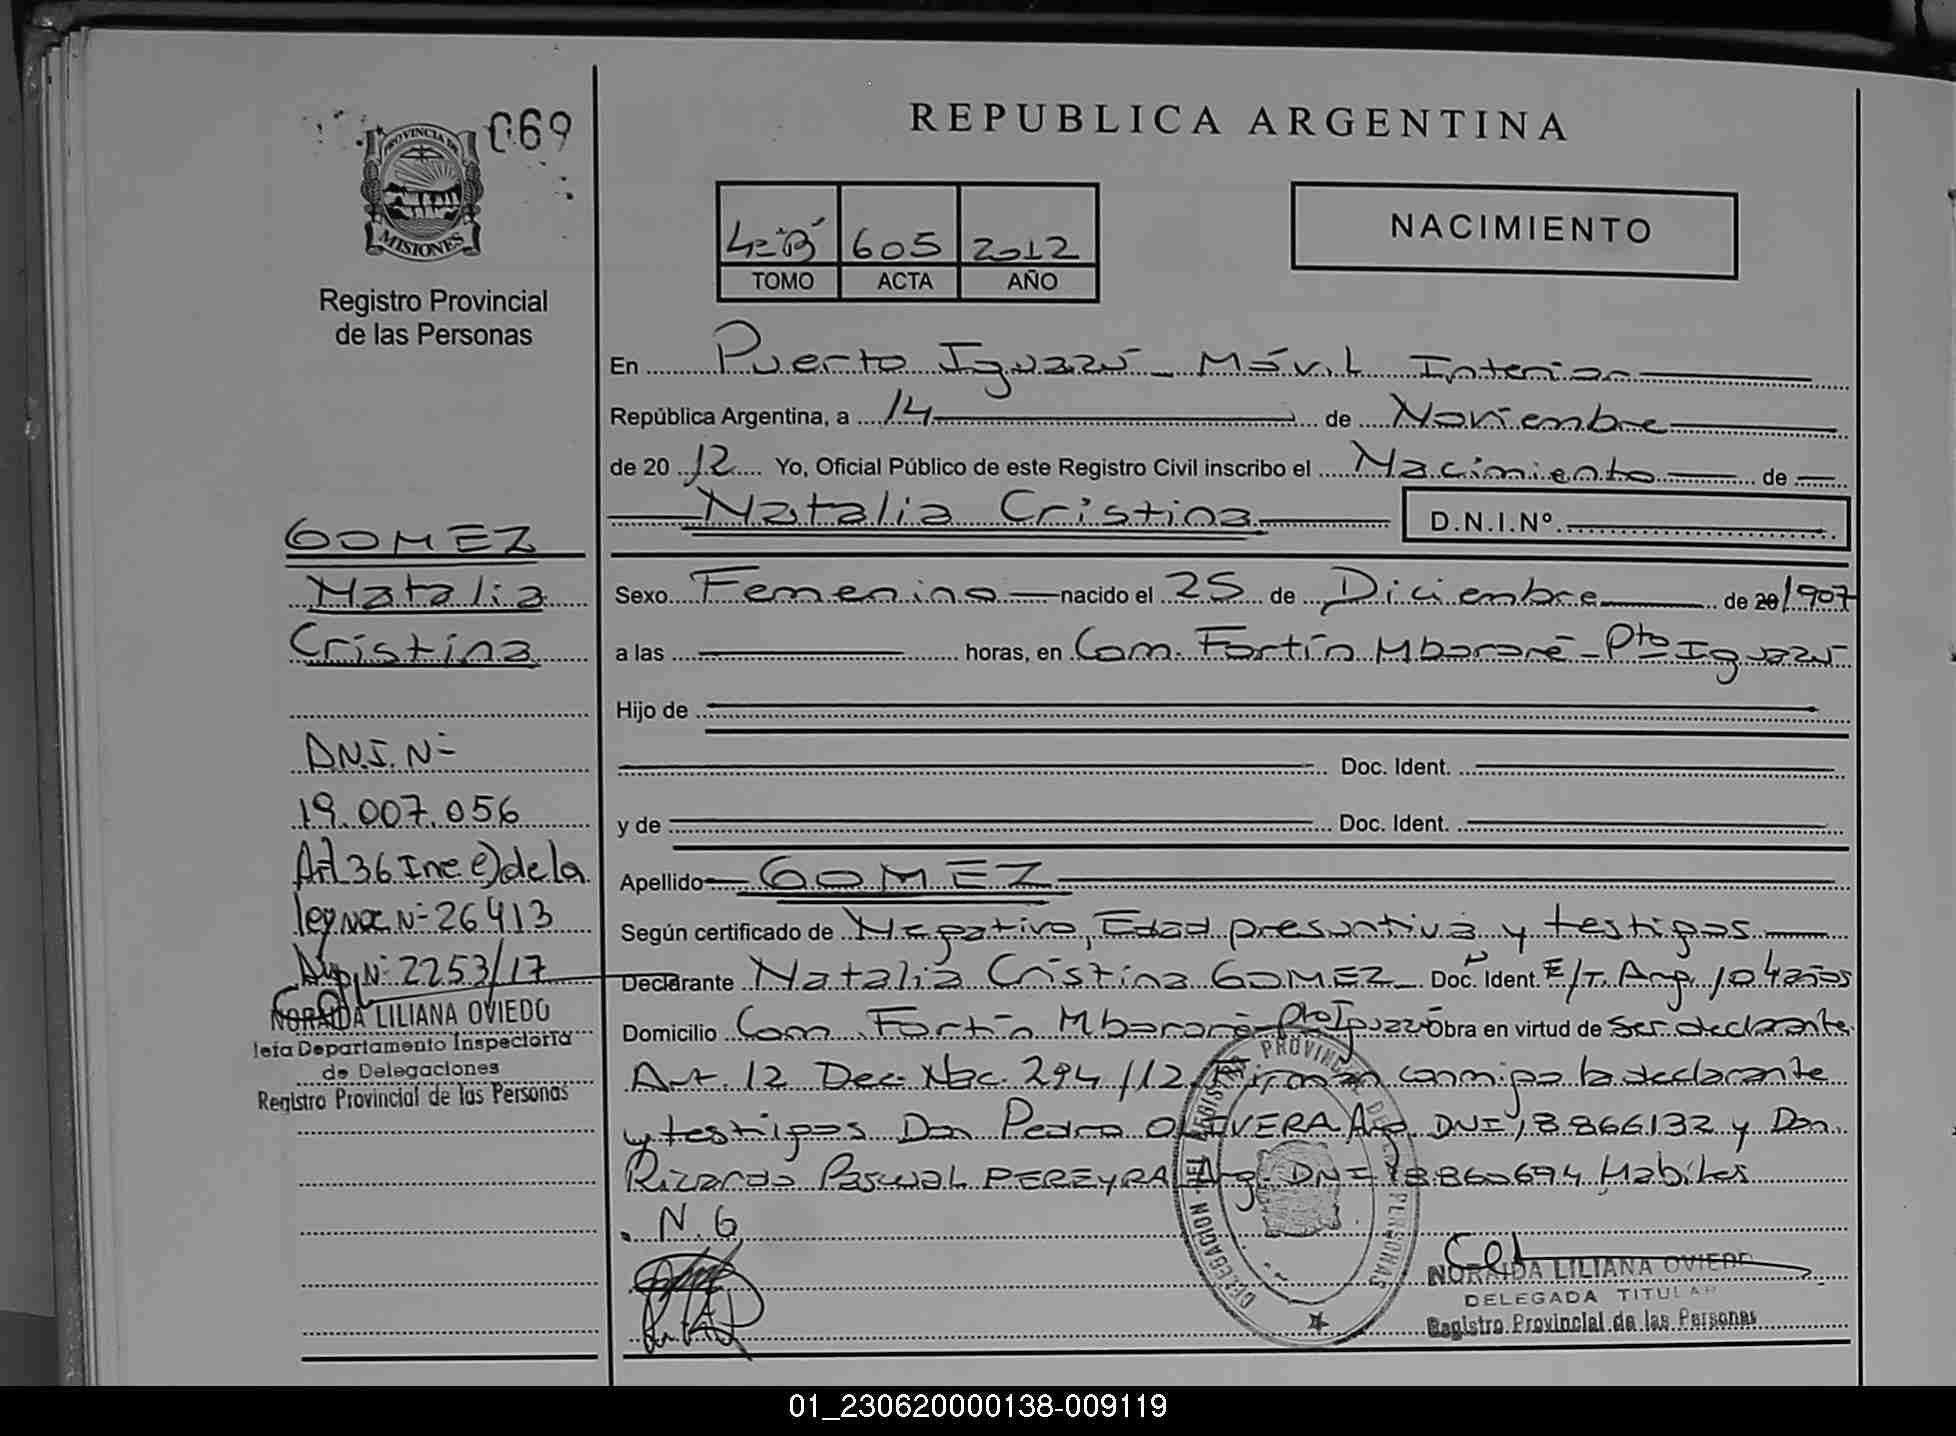 069
PROVINCIA DE
MISIONES
Registro Provincial
de las Personas
GOMEZ
Natalia
Cristina
D.N.I. Nº
19.007.056
Art 36 Inc e) de la
ley nac Nº 26413
Disp. Nº 2253/17
NORAIDA LILIANA OVIEDO
Jefa Departamento Inspectoría
de Delegaciones
Registro Provincial de las Personas
REPUBLICA ARGENTINA
4º "B" 605 2012
TOMO ACTA AÑO
NACIMIENTO
En Puerto Iguazú - Móvil Interior
República Argentina, a 14 de Noviembre
de 20 12 Yo, Oficial Público de este Registro Civil inscribo el Nacimiento de
Natalia Cristina D.N.I. Nº
Sexo Femenino nacido el 25 de Diciembre de 20 1907
a las horas, en Com. Fortín Mbororé - Pto Iguazú
Hijo de
Doc. Ident.
y de Doc. Ident.
Apellido GOMEZ
Según certificado de Negativo, Edad presuntiva y testigos
Declarante Natalia Cristina GOMEZ Doc. Ident. E/T. Arg. 104 años
Domicilio Com. Fortín Mbororé - Pto Iguazú Obra en virtud de Ser declarante
Art. 12 Dec. Nac. 294/12. Firman conmigo la declarante
y testigos Don Pedro OLIVERA Arg. DNI 18.866132 y Don
Ricardo Pascual PEREYRA Arg. DNI 18860694 Hábiles
N.G
DELEGACION DEL REGISTRO PROVINCIAL DE LAS PERSONAS
NORAIDA LILIANA OVIEDO
DELEGADA TITULAR
Registro Provincial de las Personas
01_230620000138-009119